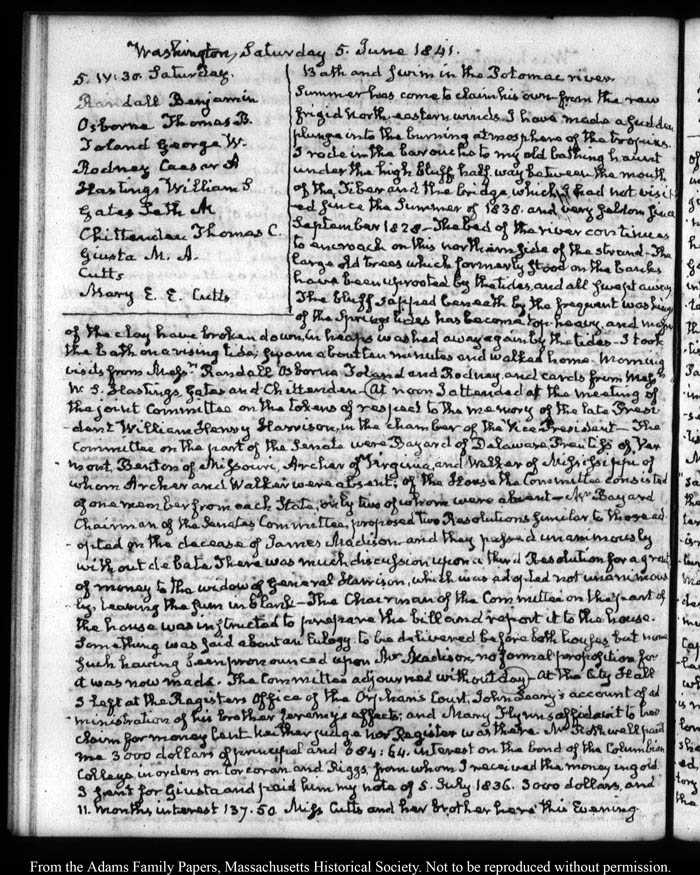 Washington, Saturday 5. June 1841.
5. IV:30. Saturday.
Randall Benjamin
Osborne Thomas B.
Toland George W.
Rodney Caesar A
Hastings William S
Gates Seth M
Chittenden Thomas C.
Giusta M. A.
Cutts
Mary E. E. Cutts
Bath and swim in the Potomac river
Summer has come to claim his own from the raw
frigid north-eastern winds. I have made a sudden
plunge into the burning atmosphere of the tropics.
I rode in the barouche to my old bathing haunt
under the high bluff half way between the mouth
of the Tiber and the bridge which I had not visit
ed since the Summer of 1838. and very seldom since
September 1828—The bed of the river continues
to encroach on this northern side of the strand—The
large old trees which formerly stood on the banks
have been uprooted by the tides, and all swept away
The bluff sapped beneath by the frequent washing
of the Spring tides has become top-heavy, and
of the clay have broken down, in heaps washed away again by the tides—I took
the bath on a rising tide, swam about ten minutes and walked home. Morning
visits from Messrs. Randall Osborne Toland and Rodney and cards from Messrs
W. S. Hastings, Gates and Chittenden—At noon I attended at the meeting of
the joint Committee on the tokens of respect to the memory of the late Presi
dent William Henry Harrison, in the chamber of the Vice President—The
Committee on the part of the Senate were Bayard of Delaware, Prentiss of Ver
mont, Benton of Missouri, Archer of Virginia, and Walker of Mississippi of
whom Archer and Walker were absent; of the House the Committee consisted
of one member from each State, only two of whom were absent—Mr Bayard
Chairman of the Senates Committee, proposed two Resolutions similar to those ad
opted on the decease of James Madison, and they passed unanimously
without debate. There was much discussion upon a third Resolution for a grant
of money to the widow of General Harrison, which was adopted not unanimous
ly, leaving the sum in blank—The Chairman of the Committee on the part of
the house was instructed to prepare the bill and report it to the house.
Something was said about an Eulogy to be delivered before both houses but none
such having been pronounced upon Mr Madison, no formal proposition for
it was now made. The Committee adjourned without day—At the City Hall
I left at the Registers Office of the Orphan's Court, John Leary's account of ad
ministration of his brother Jeremy's effects; and Mary Flynn's affidavit to her
claim for money lent. Neither judge nor Register was there. Mr Rothwell paid
me 3000 dollars of principal and 684:64. interest on the bond of the Columbian
College in orders on Corcoran and Riggs from whom I received the money in gold
I sent for Giusta and paid him my note of 5. July 1836. 3000 dollars, and
11. months interest 137.50. Miss Cutts and her brother here this Evening
From the Adams Family Papers, Massachusetts Historical Society. Not to be reproduced without permission.